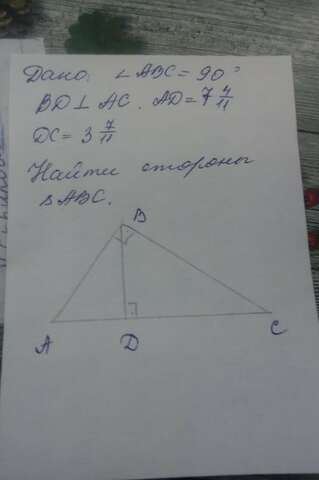 Дано: ∠ABC = 90°
BD ⊥ AC. AD = 7 4/11
DC = 3 7/11
Найти стороны
△ABC.
B
A
D
C